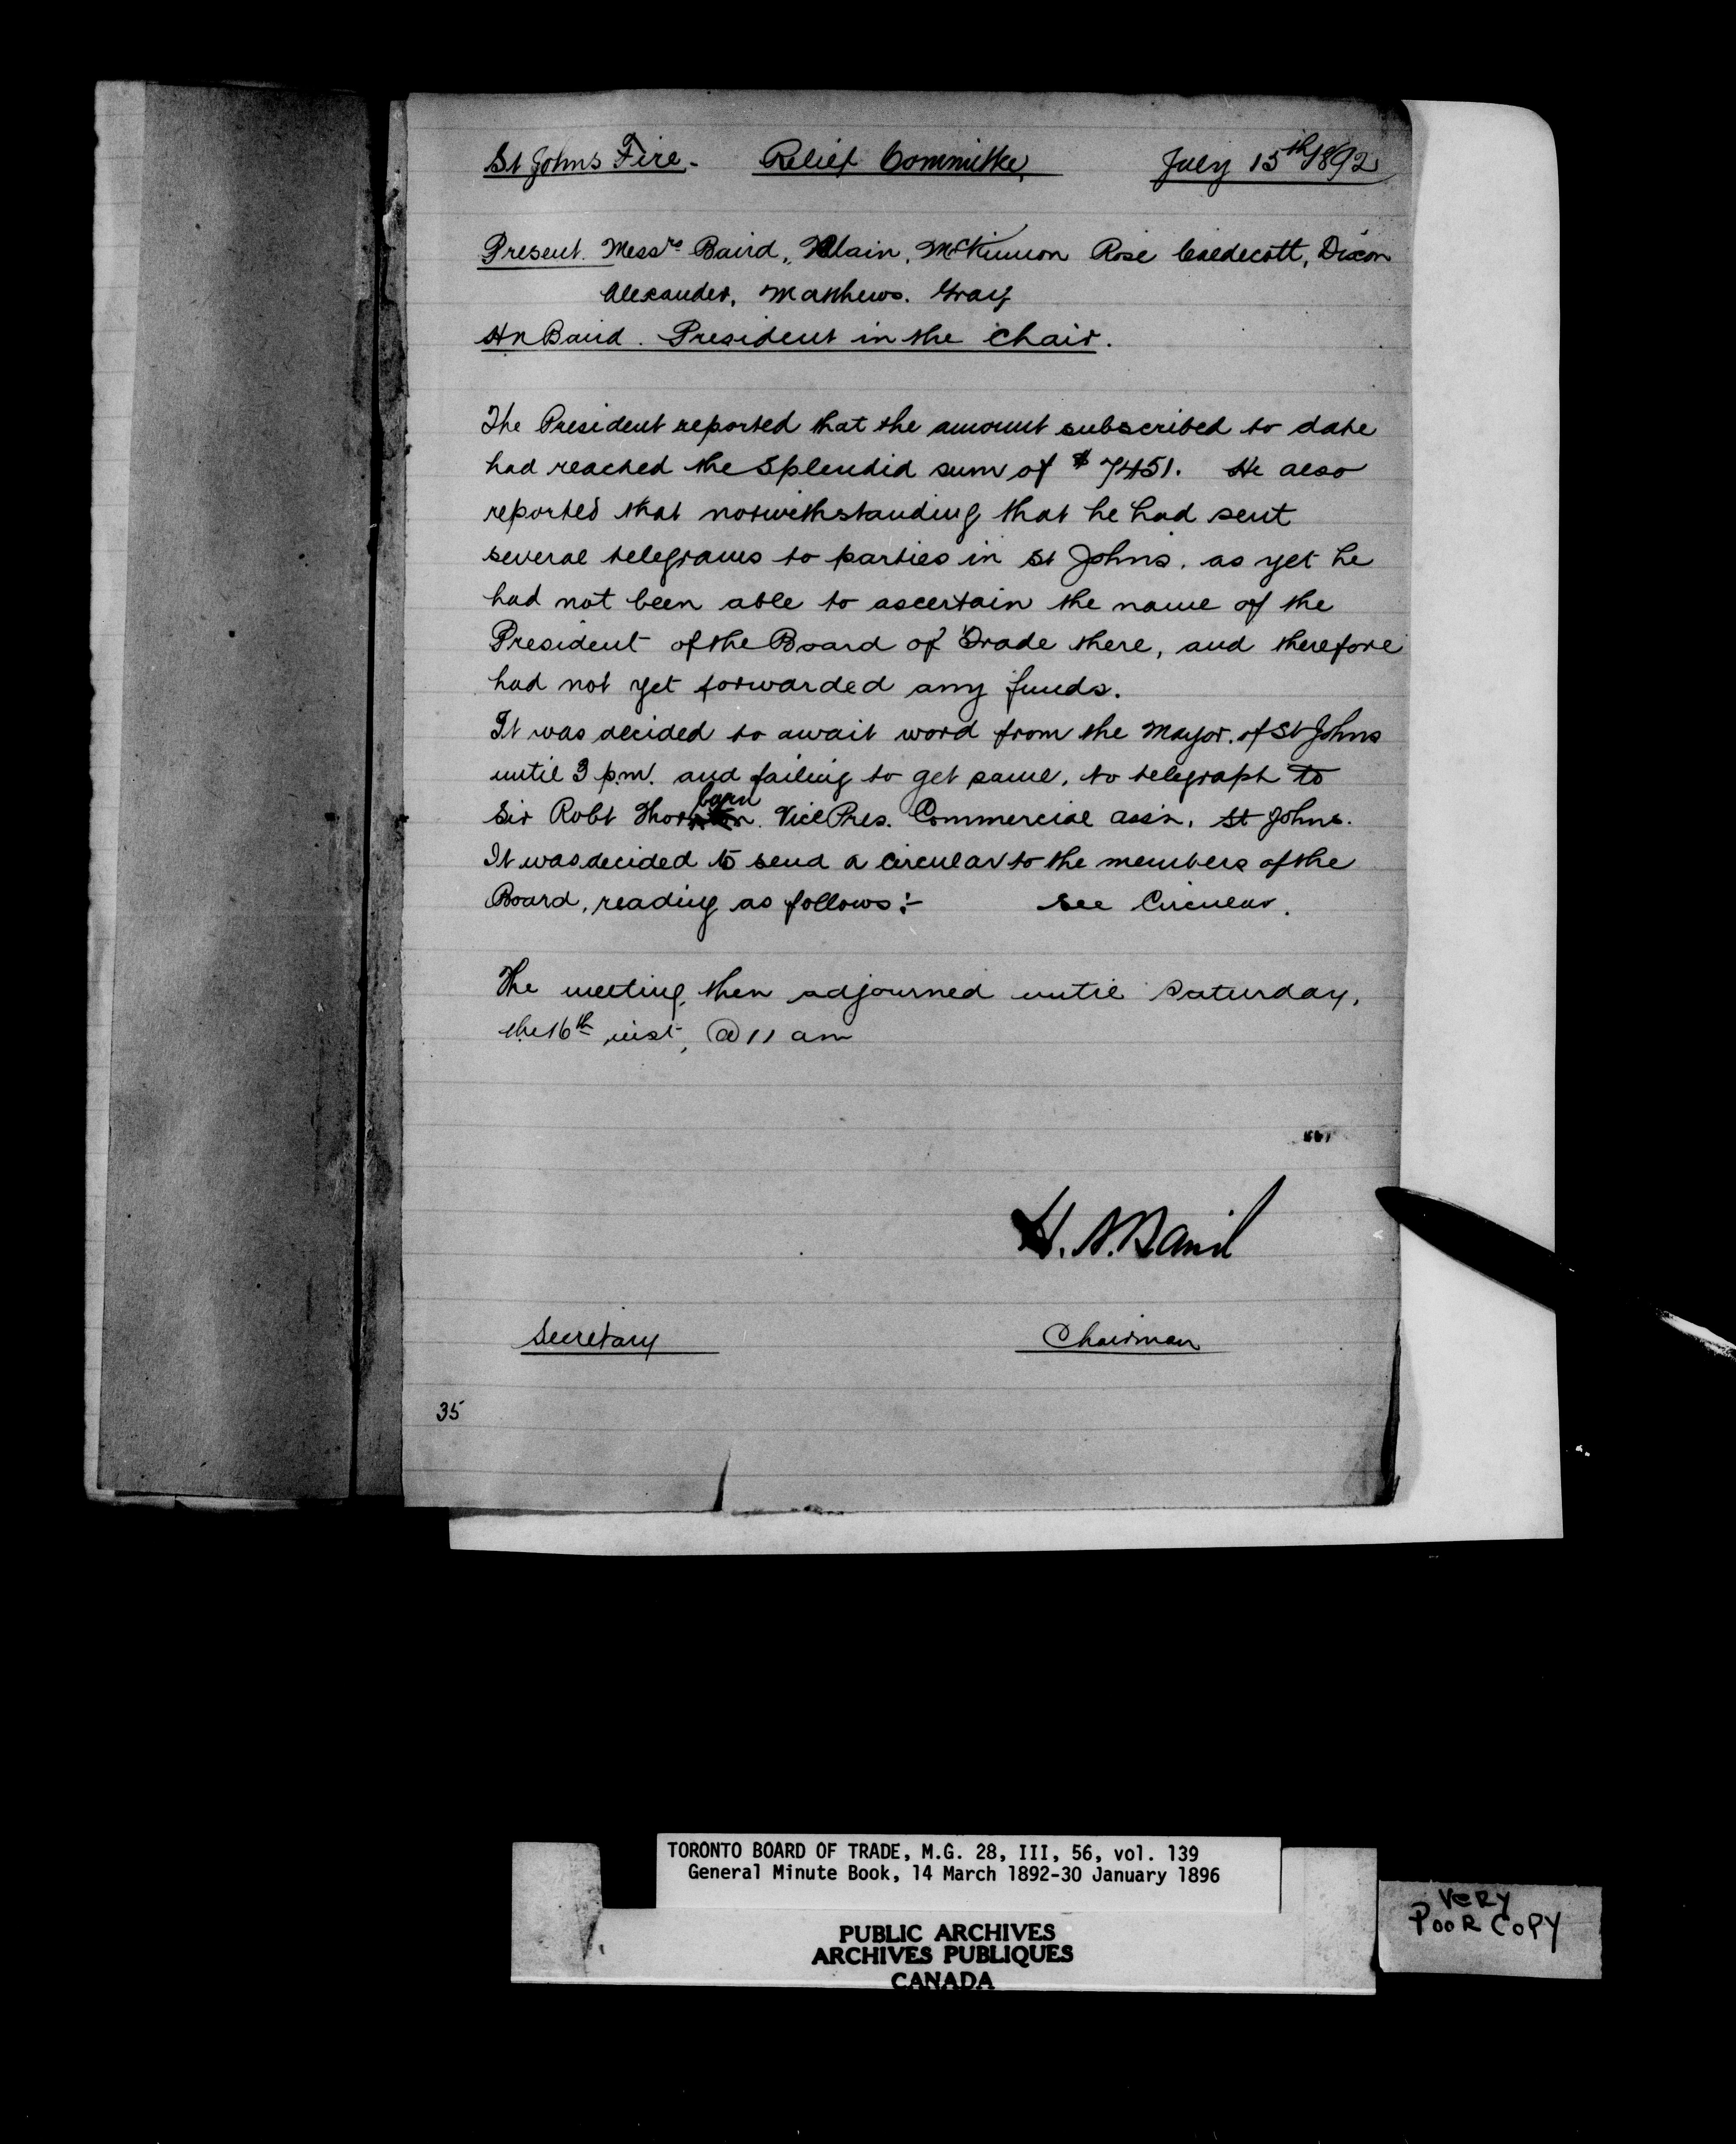 St Johns Fire - Relief Committee, July 15th 1892
Present. Messrs Baird, Blain, McKinnon Rose Caldecott, Dixon
Alexander, Matthews. Gray
HN Baird. President in the chair.
The President reported that the amount subscribed to date
had reached the Splendid sum of $7451. He also
reported that notwithstanding that he had sent
several telegrams to parties in St Johns, as yet he
had not been able to ascertain the name of the
President of the Board of Trade there, and therefore
had not yet forwarded any funds.
It was decided to await word from the Mayor. of St Johns
until 3 p.m. and failing to get same, to telegraph to
Sir Robt Thorburn. Vice Pres. Commercial assn, St Johns.
It was decided to send a circular to the members of the
Board, reading as follows:- See Circular.
The meeting then adjourned until Saturday,
the 16th inst, @ 11 am
H. N. Baird
Secretary Chairman
35
TORONTO BOARD OF TRADE, M.G. 28, III, 56, vol. 139
General Minute Book, 14 March 1892-30 January 1896
PUBLIC ARCHIVES
ARCHIVES PUBLIQUES
CANADA
VERY
POOR COPY